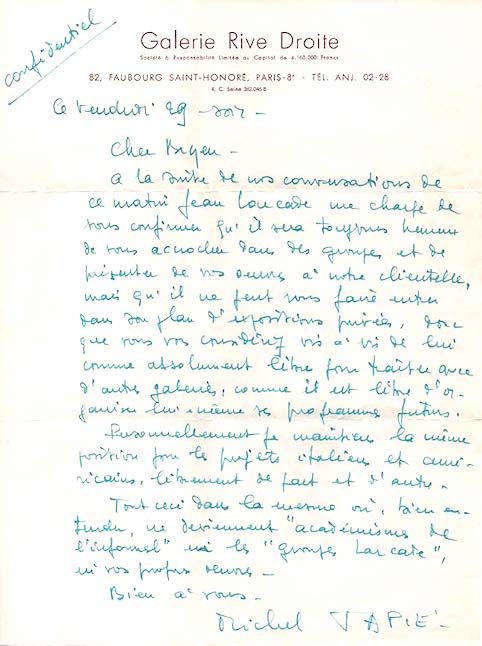 confidentiel
Galerie Rive Droite
Société à Responsabilité Limitée au Capital de 4.160.000 Francs
82, FAUBOURG SAINT-HONORÉ, PARIS-8e - TÉL. ANJ. 02-28
R. C. Seine 362.046 B
Ce vendredi 29 - soir -
Cher Bryen -
A la suite de nos conversations de
ce matin Jean Larcade me charge de
vous confirmer qu'il sera toujours heureux
de vous accrocher dans des groupes et de
présenter de vos œuvres à notre clientelle,
mais qu'il ne peut vous faire entrer
dans son plan d'expositions privées, donc
que vous vous considériez vis à vis de lui
comme absolument libre pour traiter avec
d'autres galeries, comme il est libre d'or-
ganiser lui-même ses programmes futurs.
Personnellement je maintiens la même
position pour les projets italiens et amé-
ricains, librement de part et d'autre.
Tout ceci dans la mesure où, bien en-
tendu, ne deviennent "académismes de
l'informel" ni les "groupes Larcade",
ni vos propres œuvres -
Bien à vous -
Michel TAPIÉ -